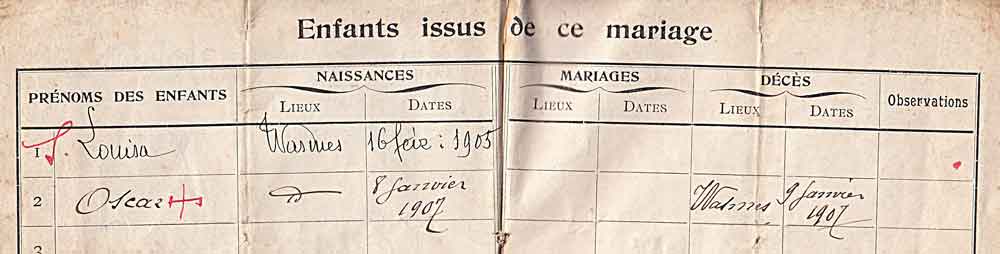 Enfants issus de ce mariage
PRÉNOMS DES ENFANTS NAISSANCES MARIAGES DÉCÈS Observations
LIEUX DATES LIEUX DATES LIEUX DATES
1 Louisa Wasmes 16 fév: 1905
2 Oscar 8 Janvier 1907 Wasmes 9 Janvier 1907
3